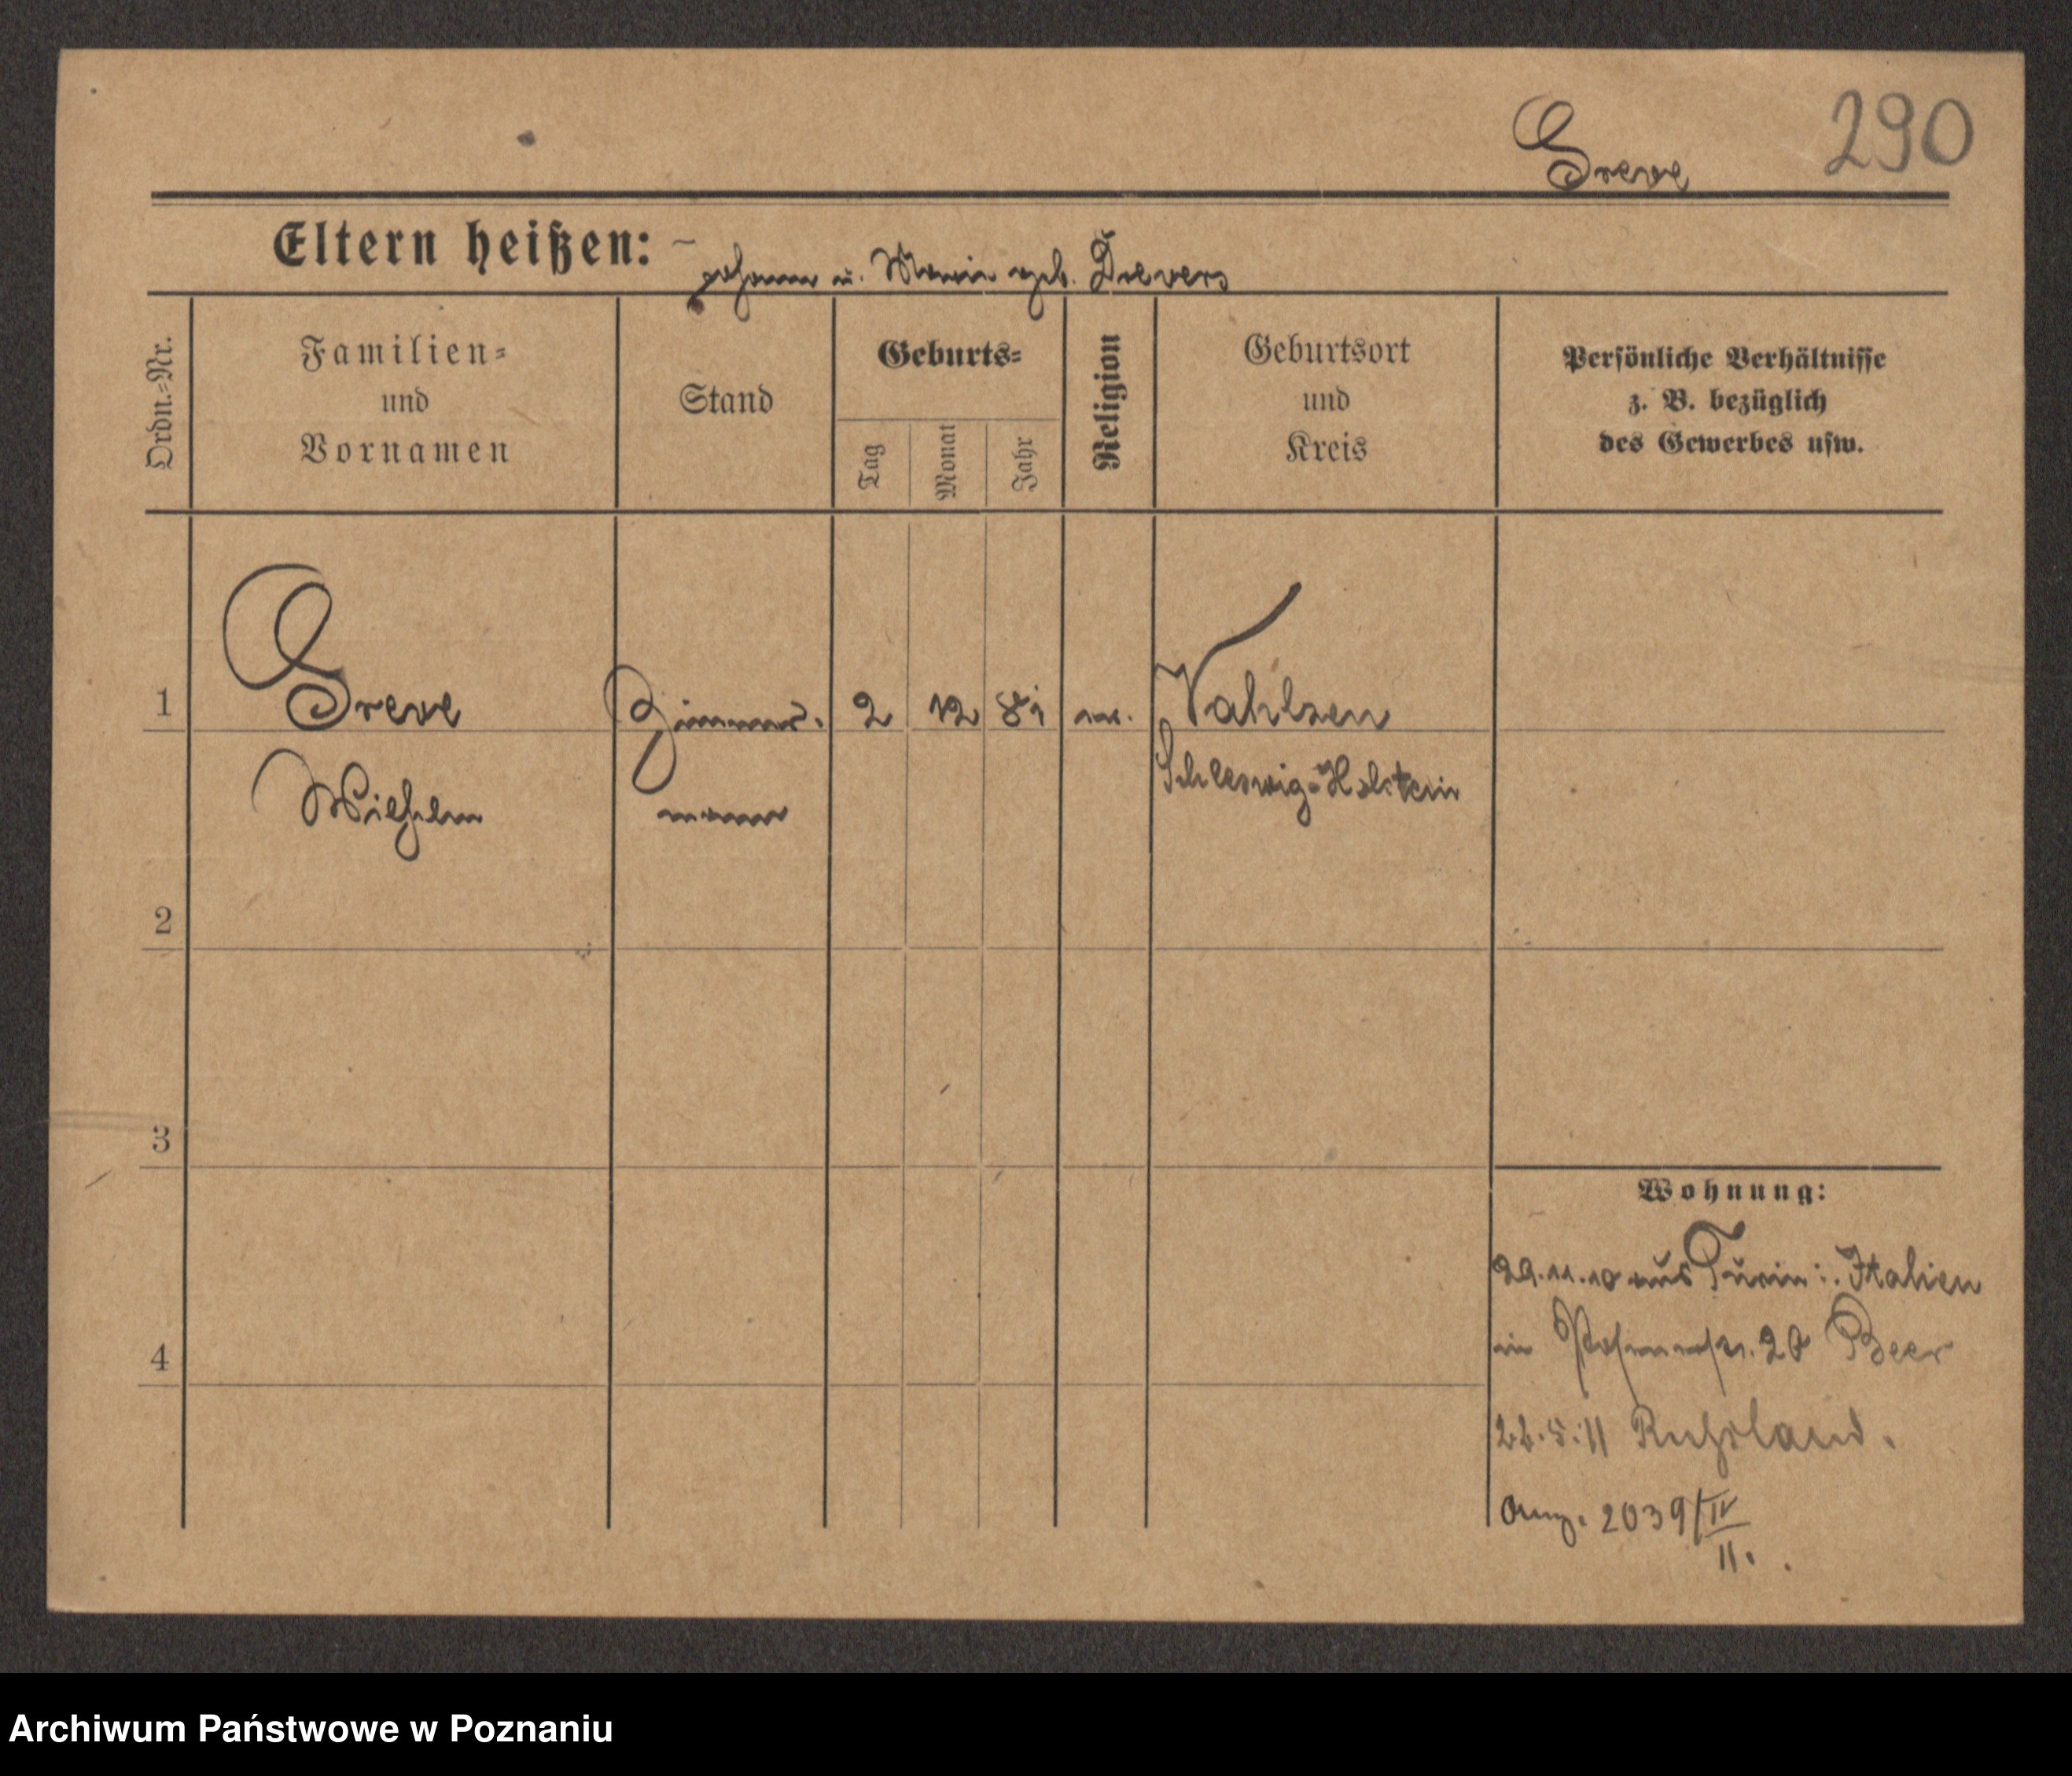 Greve 290
Eltern heißen: Johann u. Maria geb. Drevers
Ordn.-Nr.
Familien-
und
Vornamen
Stand
Geburts-
Tag
Monat
Jahr
Religion
Geburtsort
und
Kreis
Persönliche Verhältnisse
z. B. bezüglich
des Gewerbes usw.
1 Greve Zimmer- 2 12 81 Vahlsen
Wilhelm mann Schleswig-Holstein
2
3
Wohnung:
29.11.10 aus Turin i. Italien
in 20 Beer
4
26.5.11 Russland.
2039/IV
11.
Archiwum Państwowe w Poznaniu